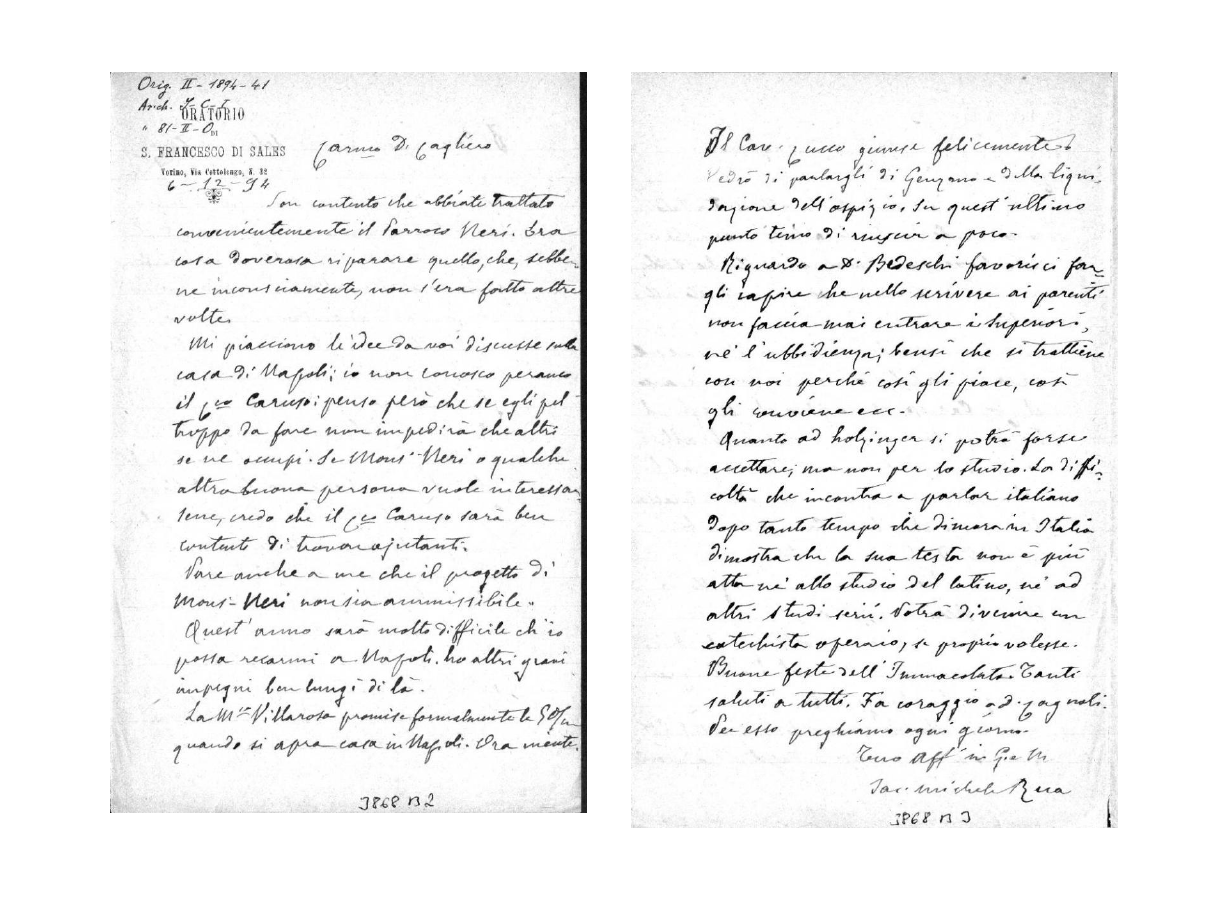 Orig. II - 1894 - 41
Arch. I - C - I
" 81 - II - O
ORATORIO
DI
S. FRANCESCO DI SALES
Torino, Via Cottolengo, N. 32
6 - 12 - 94
Carmo D. Cagliero
Son contento che abbiate trattato
convenientemente il Parroco Neri. Era
cosa doverosa riparare quello, che, sebbe-
ne inconsciamente, non s'era fatto altre
volte.
Mi piacciono le idee da voi discusse sulla
casa di Napoli; io non conosco peranco
il Caruso: penso però che se egli
troppo da fare non impedirà che altri
se ne occupi. Se Mons. Neri o qualche
altra buona persona vuole interessar-
sene, credo che il Caruso sarà ben
contento di trovare ajutanti.
Pare anche a me che il progetto di
Mons. Neri non sia ammissibile.
Quest'anno sarà molto difficile ch'io
possa recarmi a Napoli. ho altri gravi
impegni ben lungi di là.
La Villarosa promise formalmente le
quando si apra casa in Napoli. Ora mente.
3868 B 2
Il Cav. Zucco giunse felicemente.
Vedrò di parlargli di Genzano e della liqui-
dazione dell'ospizio. Su quest'ultimo
punto temo di riuscir a poco.
Riguardo a D. Bedeschi favorisci far-
gli capire che nello scrivere ai parenti
non faccia mai entrare i Superiori,
nè l'ubbidienza; bensì che si trattiene
con voi perchè così gli piace, così
gli conviene ecc.
Quanto ad holzinger si potrà forse
accettare, ma non per lo studio. La diffi-
coltà che incontra a parlar italiano
dopo tanto tempo che dimora in Italia
dimostra che la sua testa non è più
atta nè allo studio del latino, nè ad
altri studi serii. Potrà divenire un
catechista operaio, se proprio volesse.
Buone feste dell'Immacolata. Tanti
saluti a tutti. Fa coraggio a d. Cagnoli.
Per esso preghiamo ogni giorno.
Tuo Aff. in G. e M.
Sac. Michele Rua
3868 B 3